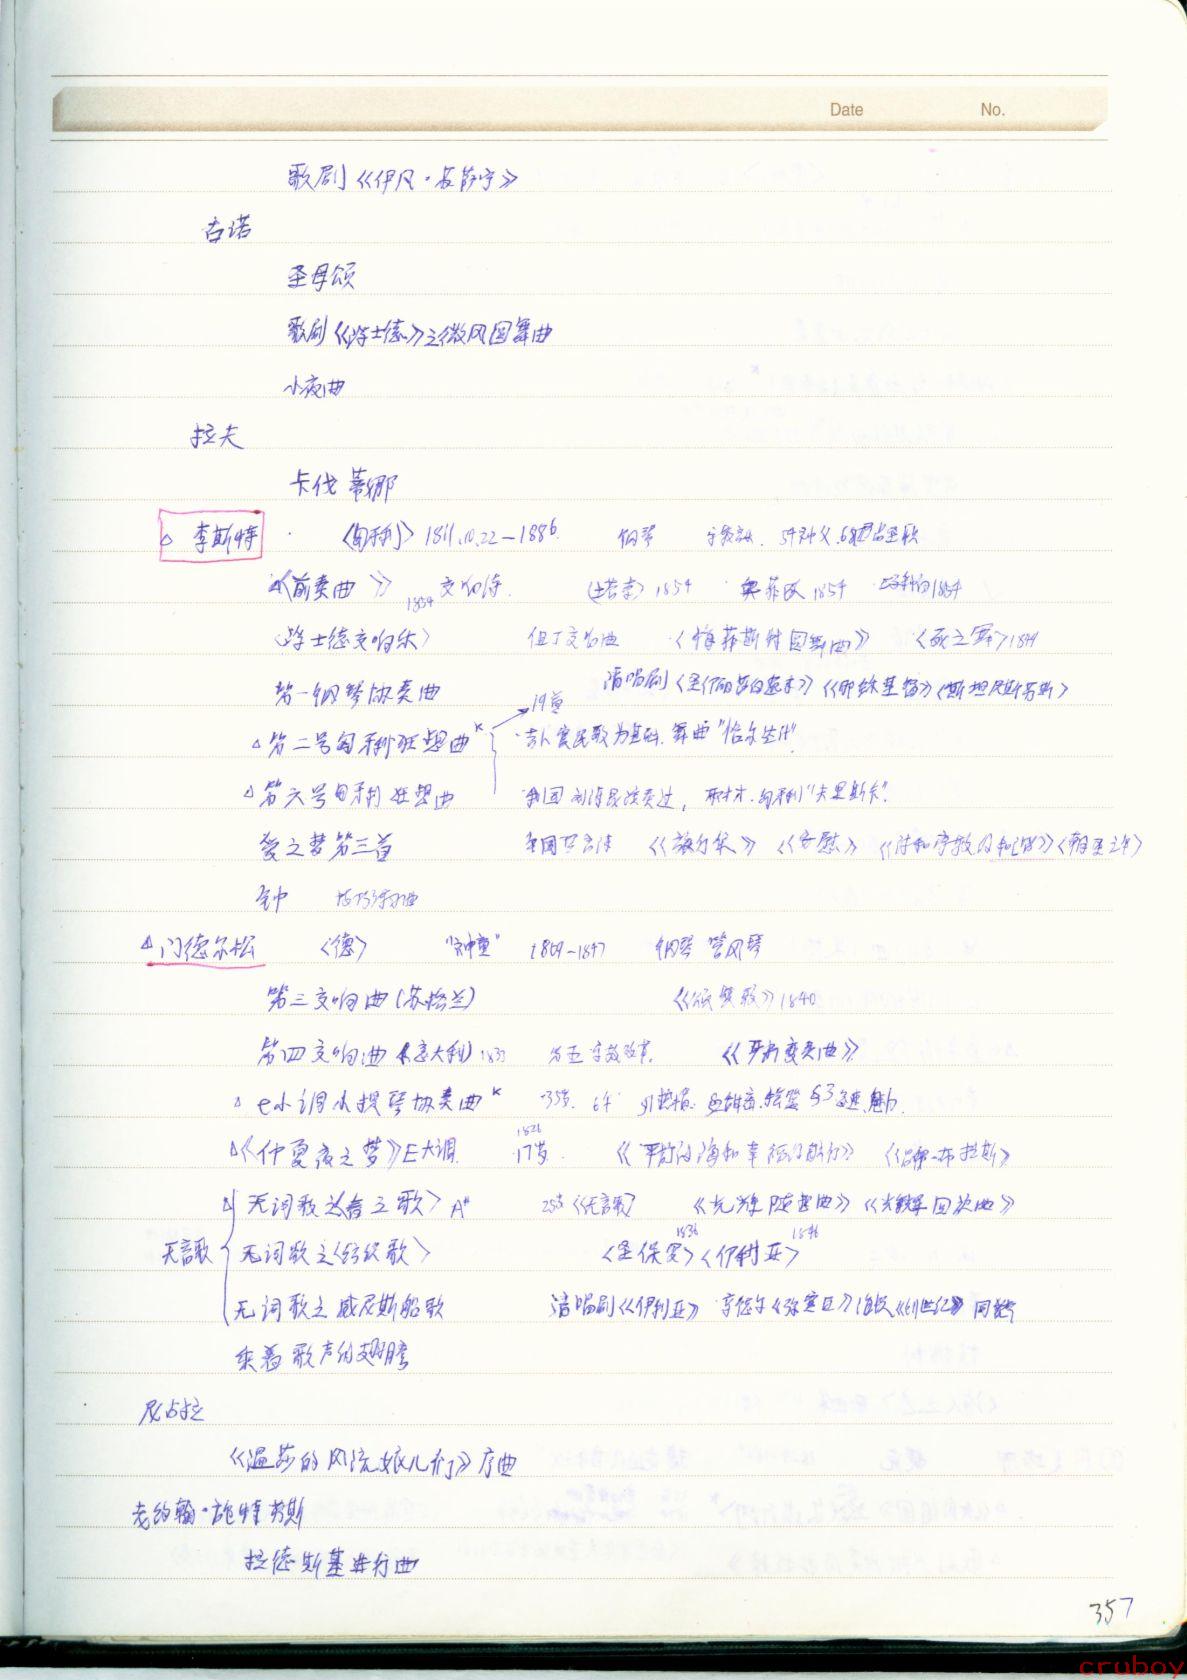 Date No.
歌剧《伊凡·苏萨宁》
古诺
圣母颂
歌剧《浮士德》之微风圆舞曲
小夜曲
拉夫
卡伐蒂娜
△ 李斯特 〈匈利〉 1811.10.22—1886. 钢琴
《前奏曲》 1854 交响诗. 〈塔索〉 1854 奥菲欧 1854 1854
〈浮士德交响乐〉 但丁交响曲 〈梅菲斯特圆舞曲》 〈死之舞〉1849
第一钢琴协奏曲 清唱剧
19首
△第二号匈利狂想曲* 民歌为基础. 舞曲
△第六号匈利狂想曲 我国刘诗昆演奏过,
爱之梦第三首 《旅行岁》 《安慰》
钟
△门德尔松 〈德〉 "神童" 1809—1847 钢琴 管风琴
第三交响曲(苏格兰) 《颂赞歌》1840
第四交响曲(意大利) 1833 第五宗教改革. 《严肃变奏曲》
△ e小调小提琴协奏曲* 35岁.
△《仲夏夜之梦》E大调. 1826 17岁. 《平静的海和幸福的航行》 《吕伊·布拉斯》
△ 无词歌之春之歌〉A# 25岁《无言歌》 《光辉随想曲》《光辉回旋曲》
无言歌 无词歌之〈纺织歌〉 〈圣保罗〉1836〈伊利亚〉1846
无词歌之威尼斯船歌 清唱剧《伊利亚》 亨德尔《弥赛亚》海顿《创世纪》
乘着歌声的翅膀
尼古拉
《温莎的风流娘儿们》序曲
老约翰·施特劳斯
拉德斯基进行曲
357
cruboy